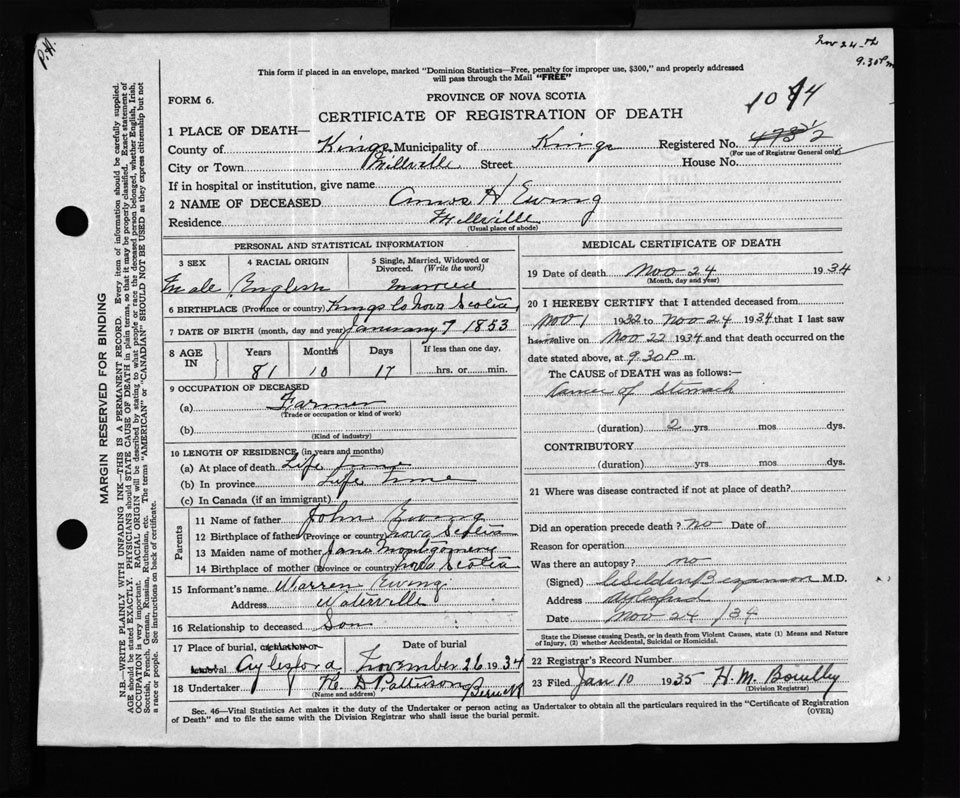 P.H.
Nov 24-th
9.30 P m
This form if placed in an envelope, marked "Dominion Statistics—Free, penalty for improper use, $300," and properly addressed
will pass through the Mail "FREE"
FORM 6.
PROVINCE OF NOVA SCOTIA
CERTIFICATE OF REGISTRATION OF DEATH
1 PLACE OF DEATH—
County of Kings Municipality of Kings Registered No.
(For use of Registrar General only)
City or Town Millville Street House No.
If in hospital or institution, give name
2 NAME OF DECEASED Amos H Ewing
Residence Millville
(Usual place of abode)
PERSONAL AND STATISTICAL INFORMATION
3 SEX 4 RACIAL ORIGIN 5 Single, Married, Widowed or Divorced. (Write the word)
Male English married
6 BIRTHPLACE (Province or country) Kings Co Nova Scotia
7 DATE OF BIRTH (month, day and year) January 7 1853
8 AGE IN Years Months Days If less than one day,
81 10 17 hrs. or min.
9 OCCUPATION OF DECEASED
(a) Farmer
(Trade or occupation or kind of work)
(b)
(Kind of industry)
10 LENGTH OF RESIDENCE (in years and months)
(a) At place of death Life time
(b) In province Life Time
(c) In Canada (if an immigrant)
Parents
11 Name of father John Ewing
12 Birthplace of father (Province or country) Nova Scotia
13 Maiden name of mother Jane Montgomery
14 Birthplace of mother (Province or country) Nova Scotia
15 Informant's name Warren Ewing
Address Waterville
16 Relationship to deceased Son
17 Place of burial, cremation or removal Date of burial
Aylesford November 26 1934
18 Undertaker H. D Pattison Berwick
(Name and address)
MEDICAL CERTIFICATE OF DEATH
19 Date of death Nov 24 1934
(Month, day and year)
20 I HEREBY CERTIFY that I attended deceased from
Nov 1 1932 to Nov 24 1934 that I last saw
him alive on Nov 22 1934 and that death occurred on the
date stated above, at 9.30 P. m.
The CAUSE of DEATH was as follows:—
Cancer of Stomach
(duration) 2 yrs mos dys.
CONTRIBUTORY
(duration) yrs. mos. dys.
21 Where was disease contracted if not at place of death?
Did an operation precede death? no Date of
Reason for operation
Was there an autopsy? no
(Signed) M.D.
Address Aylesford
Date Nov 24 /34
State the Disease causing Death, or in death from Violent Causes, state (1) Means and Nature
of Injury, (2) whether Accidental, Suicidal or Homicidal.
22 Registrar's Record Number
23 Filed Jan 10 1935 H. M.
(Division Registrar)
Sec. 46—Vital Statistics Act makes it the duty of the Undertaker or person acting as Undertaker to obtain all the particulars required in the "Certificate of Registration
of Death" and to file the same with the Division Registrar who shall issue the burial permit.
(OVER)
MARGIN RESERVED FOR BINDING
N.B.—WRITE PLAINLY WITH UNFADING INK—THIS IS A PERMANENT RECORD. Every item of information should be carefully supplied.
AGE should be stated EXACTLY. PHYSICIANS should STATE CAUSE OF DEATH in plain terms, so that it may be properly classified. Exact statement of
OCCUPATION is very important. RACIAL ORIGIN will be described by stating to what people or race the deceased person belonged, whether English, Irish,
Scottish, French, German, Russian, Ruthenian, etc. The terms "AMERICAN" or "CANADIAN" SHOULD NOT BE USED as they express citizenship but not
a race or people. See instructions on back of certificate.